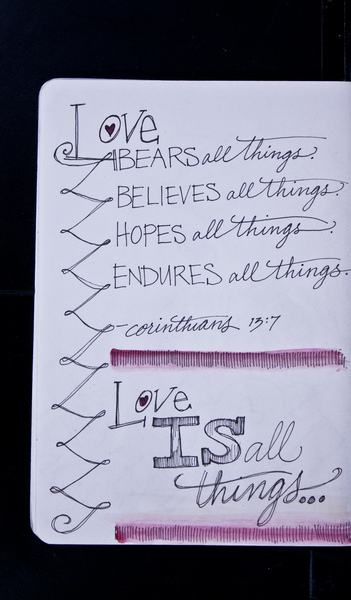 Love
BEARS all things.
BELIEVES all things.
HOPES all things.
ENDURES all things.
-corinthians 13:7
Love
IS all
things...